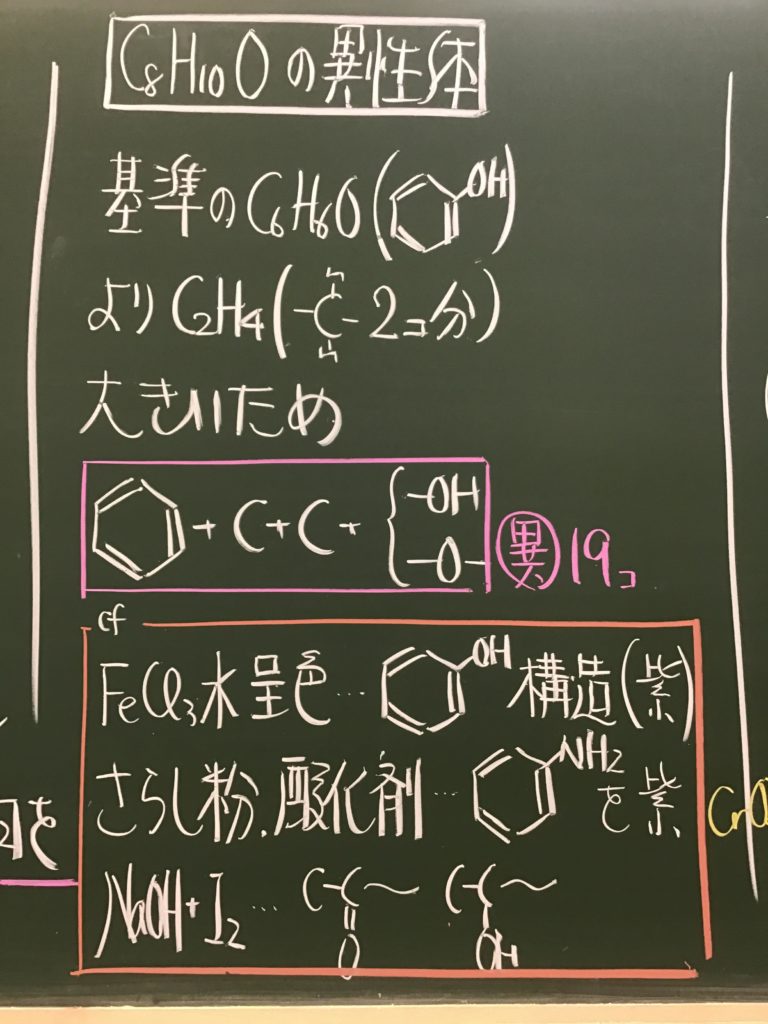 C8H10Oの異性体
基準のC6H6O(OH)
よりC2H4(-C-2コ分)
大きいため
+C+C+{-OH
-O-
異19コ
cf
FeCl3水呈色…OH構造(紫)
さらし粉、酸化剤…NH2を紫
NaOH+I2…C-C〜 C-C〜
O OH
を